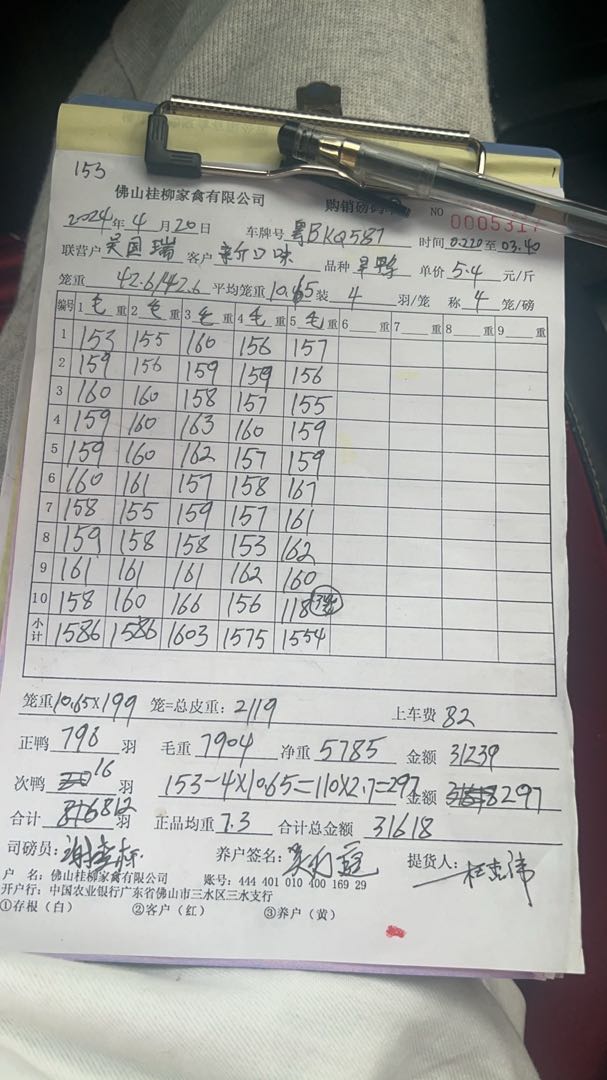 153
佛山桂柳家禽有限公司 购销磅码 NO 000531
2024年4月20日 车牌号 粤BKQ587 时间 0.220至03.40
联营户 吴国瑞 客户 新口味 品种 旱鸭 单价 5.4 元/斤
笼重 42.6/42.6 平均笼重 10.65 装 4 羽/笼 称 4 笼/磅
编号 1 毛 重 2 毛 重 3 毛 重 4 毛 重 5 毛 重 6 重 7 重 8 重 9 重
1 153 155 160 156 157
2 159 156 159 159 156
3 160 160 158 157 155
4 159 160 163 160 159
5 159 160 162 157 159
6 160 161 157 158 167
7 158 155 159 157 161
8 159 158 158 153 162
9 161 161 161 162 160
10 158 160 166 156 118 3笼
小计 1586 1586 1603 1575 1554
笼重 10.65X199 笼=总皮重: 2119 上车费 82
正鸭 796 羽 毛重 7904 净重 5785 金额 31239
次鸭 16 羽 153-4X10.65=110X2.7=297 金额 297
合计 812 羽 正品均重 7.3 合计总金额 31618
司磅员: 养户签名: 提货人:
户 名: 佛山桂柳家禽有限公司 账号: 444 401 010 400 169 29
开户行: 中国农业银行广东省佛山市三水区三水支行
①存根(白) ②客户(红) ③养户(黄)